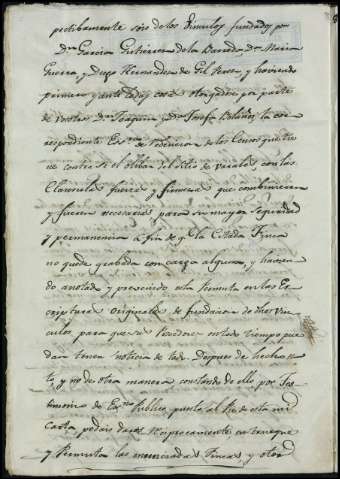 pectibamente sois de los Vinculos fundados por
Dn. Garcia Gutierrez de la Barreda, Dn. Maria
Guerra, y Diego Hernandez de Gil Perez, y haviendo
primero y ante todas cosas otorgadose por parte
de vos los Dn. Joaquin y Dn. Josefa Bolaños la cor
respondiente Essra. de redencion de los Censos que tie
ne contra si el olibar del sitio de con las
Clausulas fuerzas y firmezas que combinieren
y fueren necesarias para su mayor seguridad
y permanencia a fin de q. la Citada Finca
no quede grabada con carga alguna, y havien
do anotado y prevenido esta Permuta en las Es
cripturas originales de fundacion de dhos Vin
culos, para que sus Poseedores en todo tiempo que
dan tener noticia de todo. Despues de hecho es
to, y no de otra manera constando de ello por Tes
timonio de Essno. publico puesto al pie de esta mi
Carta podais daros reciprocamente en trueque
y Permuta las enunciadas Fincas, y otor